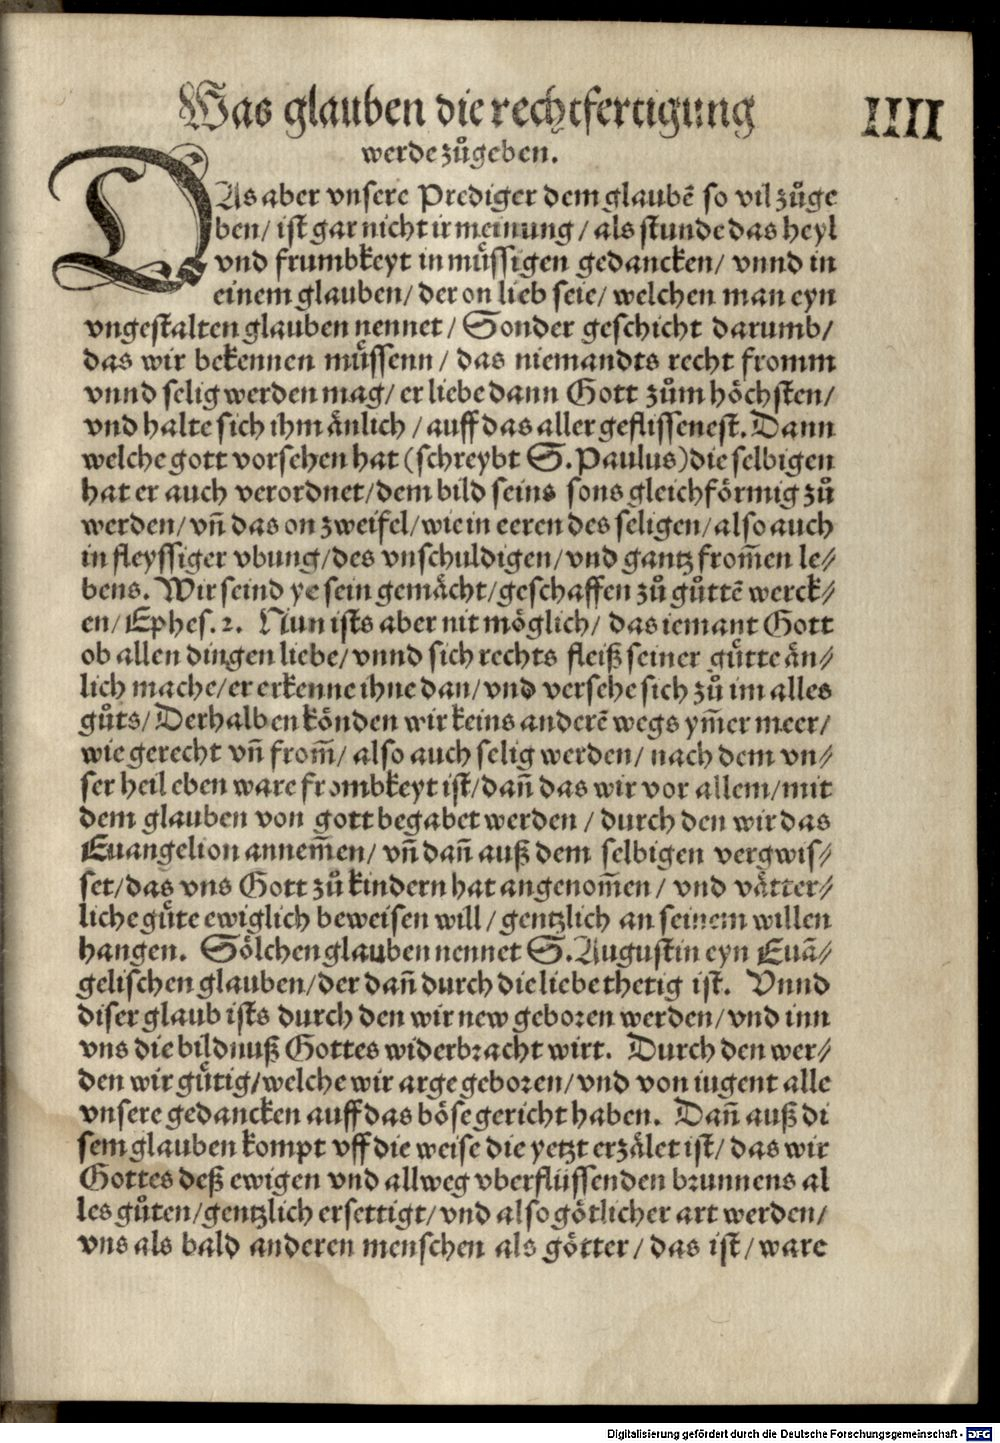 Was glauben die rechtfertigung
IIII
werde zůgeben.
DAs aber vnsere Prediger dem glaubē so vil zůge
ben/ ist gar nicht ir meinung/ als stunde das heyl
vnd frumbkeyt in müssigen gedancken/ vnnd in
einem glauben/ der on lieb seie/ welchen man eyn
vngestalten glauben nennet/ Sonder geschicht darumb/
das wir bekennen müssenn/ das niemandts recht fromm
vnnd selig werden mag/ er liebe dann Gott zům höchsten/
vnd halte sich ihm änlich/ auff das aller geflissenest. Dann
welche gott vorsehen hat (schreybt S. Paulus) die selbigen
hat er auch verordnet/ dem bild seins sons gleichförmig zů
werden/ vñ das on zweifel/ wie in eeren des seligen/ also auch
in fleyssiger vbung/ des vnschuldigen/ vnd gantz from̄en le⸗
bens. Wir seind ye sein gemächt/ geschaffen zů gůttē werck⸗
en/ Ephes. 2. Nun ists aber nit möglich/ das iemant Gott
ob allen dingen liebe/ vnnd sich rechts fleiß seiner gütte än⸗
lich mache/ er erkenne ihne dan/ vnd versehe sich zů im alles
gůts/ Derhalben könden wir keins anderē wegs ym̄er meer/
wie gerecht vñ from̄/ also auch selig werden/ nach dem vn⸗
ser heil eben ware frombkeyt ist/ dañ das wir vor allem/ mit
dem glauben von gott begabet werden/ durch den wir das
Euangelion annem̄en/ vñ dañ auß dem selbigen vergwis⸗
set/ das vns Gott zů kindern hat angenom̄en/ vnd vätter⸗
liche güte ewiglich beweisen will/ gentzlich an seinem willen
hangen. Sölchen glauben nennet S. Augustin eyn Euā⸗
gelischen glauben/ der dañ durch die liebe thetig ist. Vnnd
diser glaub ists durch den wir new geboren werden/ vnd inn
vns die bildnuß Gottes widerbracht wirt. Durch den wer⸗
den wir gütig/ welche wir arge geboren/ vnd von iugent alle
vnsere gedancken auff das böse gericht haben. Dañ auß di
sem glauben kompt vff die weise die yetzt erzälet ist/ das wir
Gottes deß ewigen vnd allweg vberflüssenden brunnens al
les gůten/ gentzlich ersettigt/ vnd also götlicher art werden/
vns als bald anderen menschen als götter/ das ist/ ware
Digitalisierung gefördert durch die Deutsche Forschungsgemeinschaft - DFG